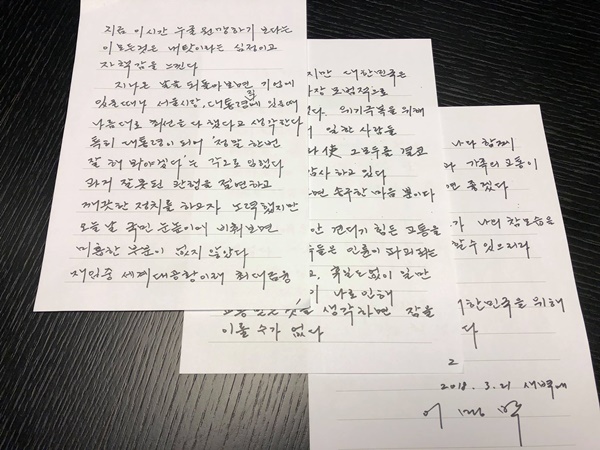 지금 이 시간 누굴 원망하기 보다는
이 모든것은 내 탓이라는 심정이고
자책감을 느낀다
지나온 날을 되돌아보면, 기업에
있을때나 서울시장, 대통령직에 있을때
나름대로 최선을 다 했다고 생각한다
특히 대통령이 되어 '정말 한번
잘 해 봐야겠다'는 각오로 임했다
과거 잘못된 관행을 절연하고
깨끗한 정치를 하고자 노력했지만
오늘날 국민 눈높이에 비춰보면
미흡한 부분이 없지 않았다
재임중 세계대공황이래 최대 금융
지만 대한민국은
가장 모범적으로
다. 위기극복을 위해
이 일한 사람들
나 使 그 모두를 결코
감사하고 있다
면 송구한 마음 뿐이다
안 견디기 힘든 고통을
들은 인륜이 파괴되는
고, 휴일도 없이 일만
나로 인해
생각하면 잠을
이룰 수가 없다
나와 함께
가족의 고통이
면 좋겠다
가 나의 참모습을
할 수 있으리라
대한민국을 위해
다
2018. 3. 21 새벽에
이 명 박